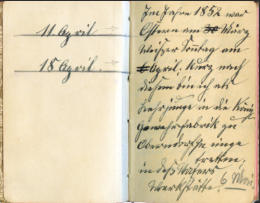 11 April
18 April.
Im Jahre 1852 war
Ostern am 30 März
Weißer Sonntag am
6 April. Kurz nach
diesem bin ich als
Lehrjunge in die König
Gewehrfabrik zu
Oberndorf einge
treten,
in des Vaters
Werkstätte. 6 Mai